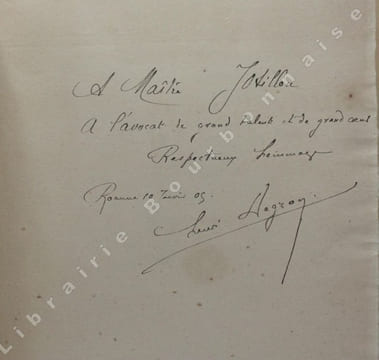 A Maître Jotillon
A l'avocat de grand talent et de grand cœur
Respectueux hommage
Roanne 10 05
Henri Degron
Librairie Bourbonnaise